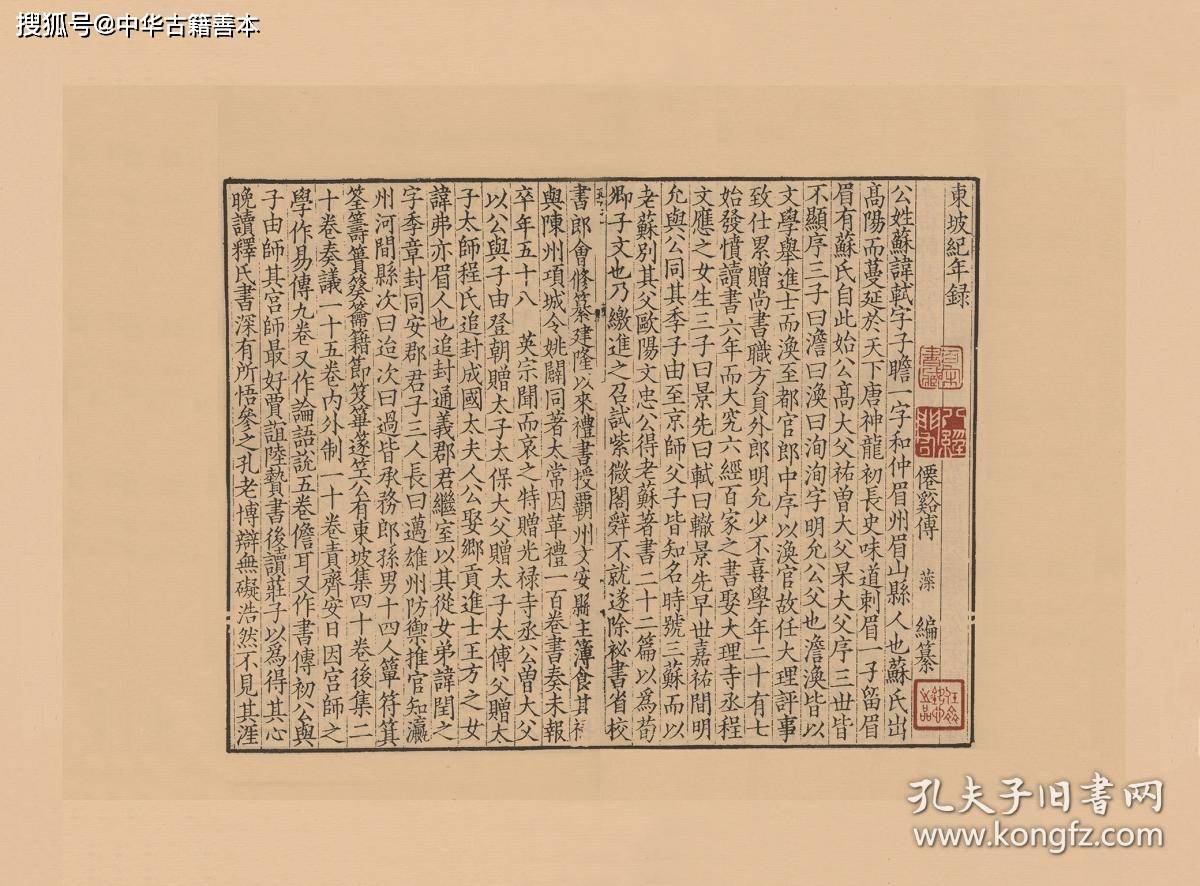 搜狐号@中华古籍善本
東坡紀年録
僊谿傅 藻 編纂
公姓蘇諱軾字子瞻一字和仲眉州眉山縣人也蘇氏出
髙陽而蔓延於天下唐神龍初長史味道刺眉一子留眉
眉有蘇氏自此始公髙大父祐曽大父杲大父序三世皆
不顯序三子曰澹曰渙曰洵洵字明允公父也澹渙皆以
文學舉進士而渙至都官郎中序以渙官故任大理評事
致仕累贈尚書職方員外郎明允少不喜學年二十有七
始發憤讀書六年而大究六經百家之書娶大理寺丞程
文應之女生三子曰景先曰軾曰轍景先早世嘉祐間明
允與公同其季子由至京師父子皆知名時號三蘇而以
老蘇別其父歐陽文忠公得老蘇著書二十二篇以為荀
卿子文也乃繳進之召試紫微閣辭不就遂除祕書省校
書郎會修纂建隆以來禮書授霸州文安縣主簿食其禄
與陳州項城令姚闢同著太常因革禮一百卷書奏未報
卒年五十八 英宗聞而哀之特贈光禄寺丞公曽大父
以公與子由登朝贈太子太保大父贈太子太傅父贈太
子太師程氏追封成國太夫人公娶鄉貢進士王方之女
諱弗亦眉人也追封通義郡君繼室以其從女弟諱閏之
字季章封同安郡君子三人長曰邁雄州防禦推官知瀛
州河間縣次曰迨次曰過皆承務郎孫男十四人簞符箕
筌籌簣䇓籥籍節笈篳䉌竺公有東坡集四十卷後集二
十卷奏議一十五卷内外制一十卷責齊安日因宫師之
學作易傳九卷又作論語説五卷儋耳又作書傳初公與
子由師其宫師最好賈誼陸贄書後讀莊子以為得其心
晩讀釋氏書深有所悟參之孔老博辯無礙浩然不見其涯
孔夫子旧书网
www.kongfz.com